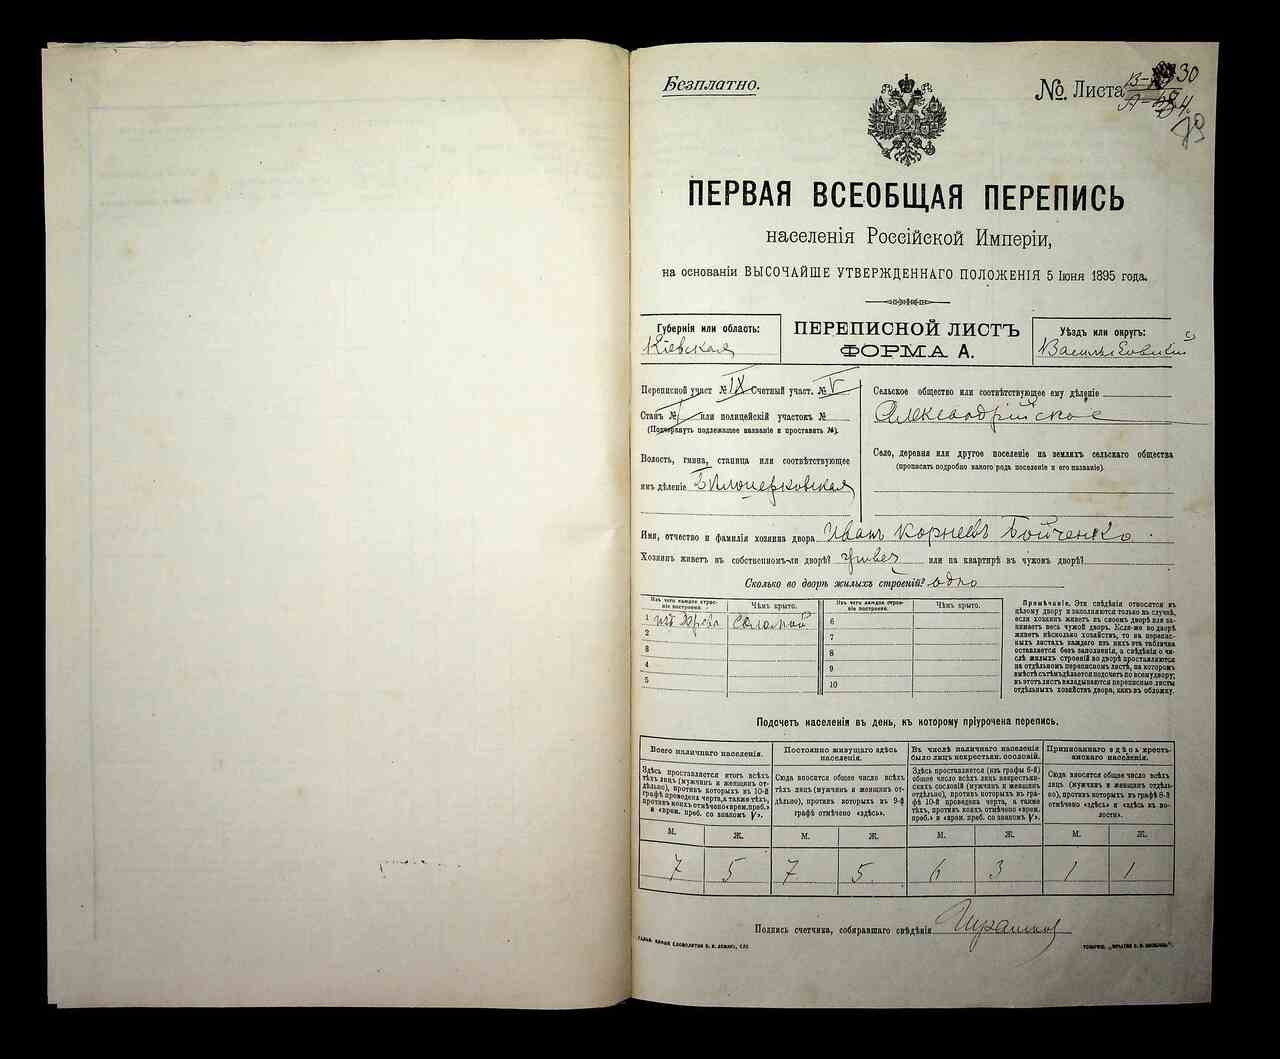 Безплатно.
№. Листа
30
ПЕРВАЯ ВСЕОБЩАЯ ПЕРЕПИСЬ
населенія Россійской Имперіи,
на основаніи ВЫСОЧАЙШЕ УТВЕРЖДЕННАГО ПОЛОЖЕНІЯ 5 Іюня 1895 года.
Губернія или область:
Кіевская
ПЕРЕПИСНОЙ ЛИСТЪ
ФОРМА А.
Уѣздъ или округъ:
Васильковскій
Переписной участ № IX Счетный участ. № V
Станъ № I или полицейскій участокъ №
(Подчеркнуть подлежащее названіе и проставить №).
Волость, гмина, станица или соотвѣтствующее
имъ дѣленіе Бѣлоцерковская
Сельское общество или соотвѣтствующее ему дѣленіе
Александрійское
Село, деревня или другое поселеніе на земляхъ сельскаго общества
(прописать подробно какого рода поселеніе и его названіе).
Имя, отчество и фамилія хозяина двора Иванъ Корнеевъ Бойченко.
Хозяинъ живетъ въ собственномъ-ли дворѣ? или на квартирѣ въ чужомъ дворѣ?
Сколько во дворѣ жилыхъ строеній? одно
Изъ чего каждое строеніе построено. Чѣмъ крыто. Изъ чего каждое строеніе построено. Чѣмъ крыто.
1 изъ дерева соломой 6
2 7
3 8
4 9
5 10
Примѣчаніе. Эти свѣдѣнія относятся къ
цѣлому двору и заполняются только въ случаѣ,
если хозяинъ живетъ въ своемъ дворѣ или занимаетъ
весь чужой дворъ. Если-же во дворѣ
живетъ нѣсколько хозяйствъ, то на переписныхъ
листахъ каждаго изъ нихъ эта табличка
оставляется безъ заполненія, а свѣдѣнія о числѣ
жилыхъ строеній во дворѣ проставляются
на отдѣльномъ переписномъ листѣ, на которомъ
вмѣстѣ съ тѣмъ дѣлается подсчетъ по всему двору;
въ этотъ листъ вкладываются переписные листы
отдѣльныхъ хозяйствъ двора, какъ въ обложку.
Подсчетъ населенія въ день, къ которому пріурочена перепись.
Всего наличнаго населенія.
Здѣсь проставляется итогъ всѣхъ
тѣхъ лицъ (мужчинъ и женщинъ отдѣльно),
противъ которыхъ въ 10-й
графѣ проведена черта, а также тѣхъ,
противъ коихъ отмѣчено «врем. преб.»
и «врем. преб. со знакомъ V».
Постоянно живущаго здѣсь
населенія.
Сюда вносится общее число всѣхъ
тѣхъ лицъ (мужчинъ и женщинъ отдѣльно),
противъ которыхъ въ 9-й
графѣ отмѣчено «здѣсь».
Въ числѣ наличнаго населенія
было лицъ некрестьян. сословій.
Здѣсь проставляется (изъ графы 6-й)
общее число всѣхъ лицъ некрестьянскихъ
сословій (мужчинъ и женщинъ
отдѣльно), противъ которыхъ въ графѣ
10-й проведена черта, а также
тѣхъ, противъ коихъ отмѣчено «врем.
преб.» и «врем. преб. со знакомъ V».
Приписаннаго здѣсь крестьянскаго
населенія.
Сюда вносится общее число всѣхъ
лицъ (мужчинъ и женщинъ отдѣльно),
противъ которыхъ въ графѣ 8-й
отмѣчено «здѣсь» и «здѣсь въ волости».
М. Ж. М. Ж. М. Ж. М. Ж.
7 5 7 5 6 3 1 1
Подпись счетчика, собиравшаго свѣдѣнія